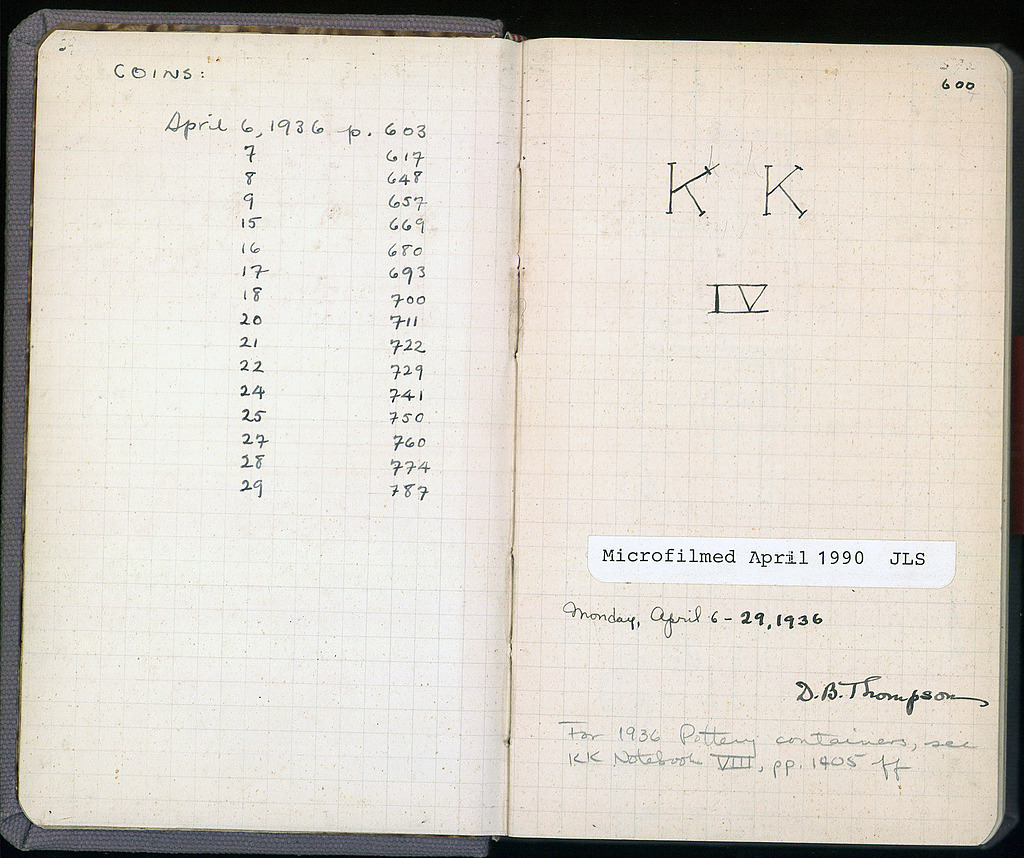 COINS:
April 6, 1936 p. 603
7 617
8 648
9 657
15 669
16 680
17 693
18 700
20 711
21 722
22 729
24 741
25 750
27 760
28 774
29 787
600
K K
IV
Microfilmed April 1990 JLS
Monday, April 6 - 29, 1936
D.B. Thompson
For 1936 Pottery containers, see
KK Notebook VIII, pp. 1405 ff